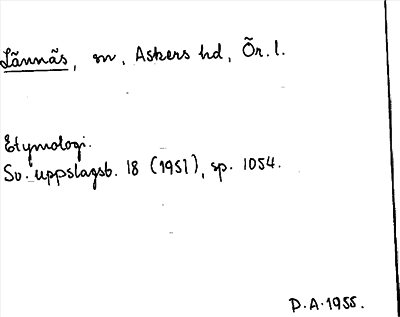 Lännäs, sn, Askers hd, Ör. l.
Etymologi.
Sv. uppslagsb. 18 (1951), sp. 1054.
D.A. 1955.